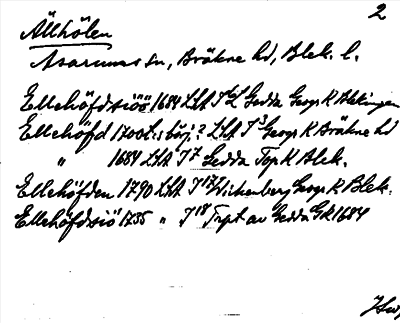 2
Ällhölen
Asarums sn, Bräkne hd, Blek. l.
Ellehöfdsiöö 1684 LSA J Gedda Geogr. K Blekingen
Ellehöfd 1700t.s börj.? LSA J³ Geogr K Bräkne hd
" 1684 LSA J⁷ Gedda Top. K Blek.
Ellehöfden 1790 LSA J¹⁷ Wihenberg Geogr K Blek.
Ellehöfdsiö 1735 " J¹⁸ Trpt av Gedda GK 1684